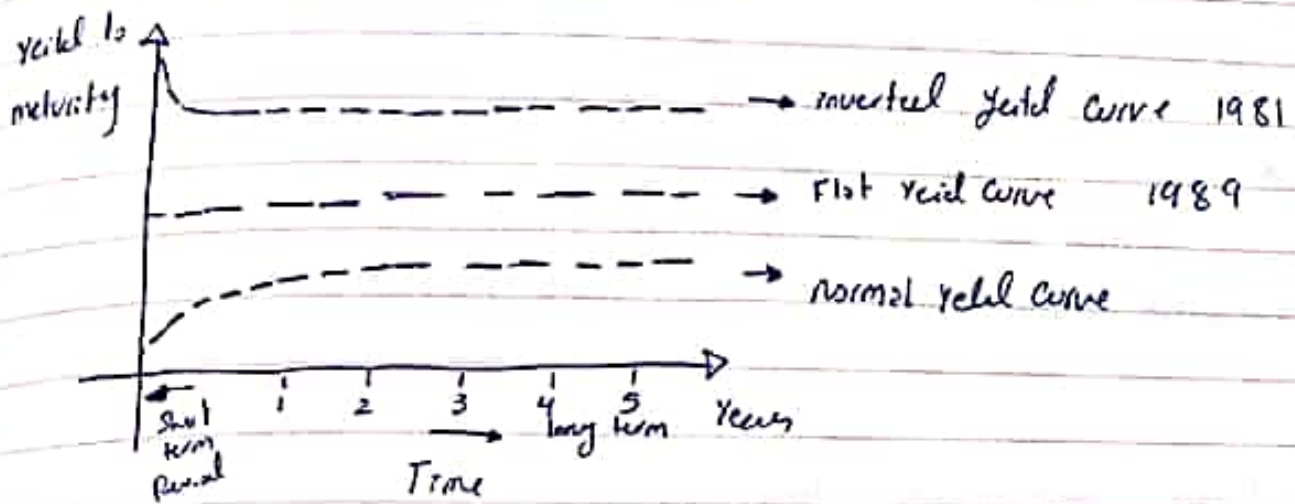 yeild to
maturity
→ inverted yeild curve 1981
→ Flat yeild curve 1989
→ normal yeild curve
1 2 3 4 5 Years
Short
term
period
→ long term
Time